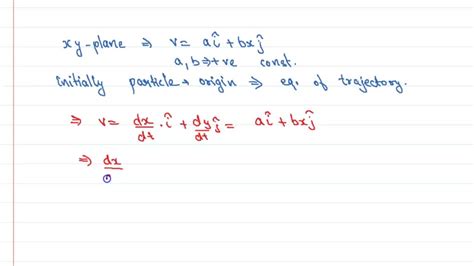 xy-plane ⇒ v = aî + bxĵ
a, b ⇒ +ve const.
initially particle → origin ⇒ eq. of trajectory.
⇒ v = dx/dt . î + dy/dt ĵ = aî + bxĵ
⇒ dx/